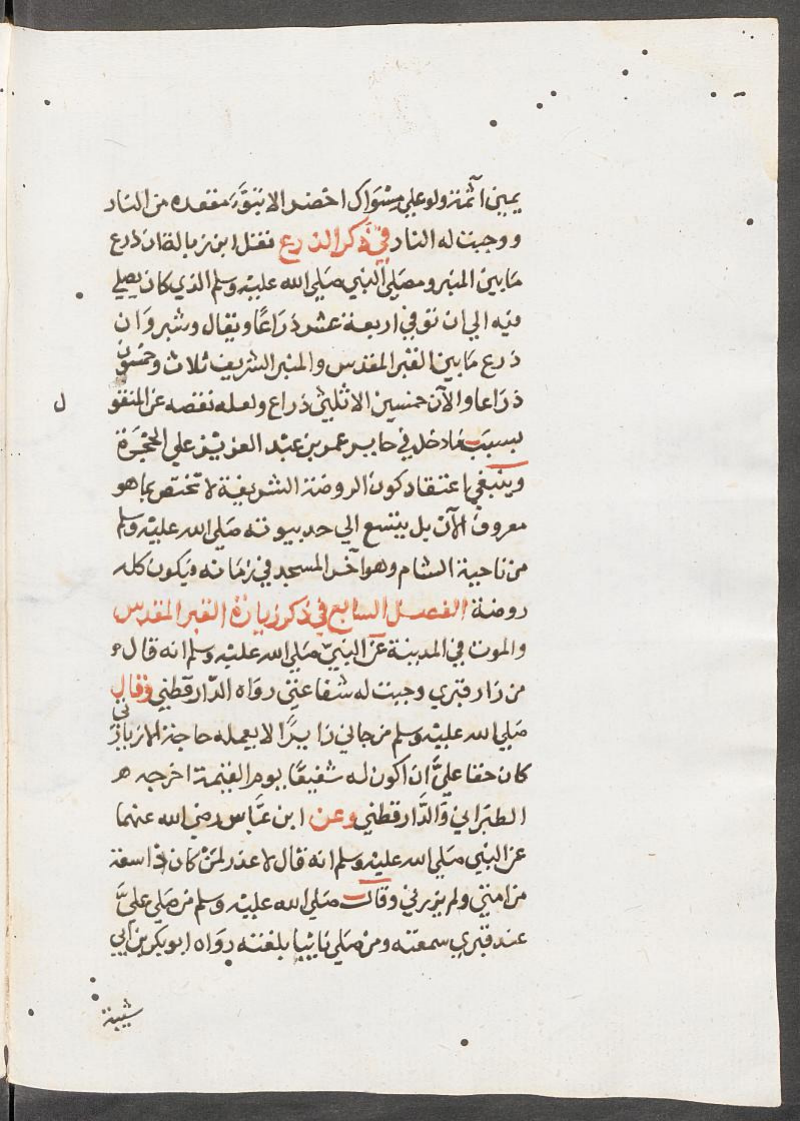 يمين آثمة ولو علي مسواك اخضر الا تبوّء مقعده من النار
ووجبت له النار في ذكر الذرع فنقل ابن زبالة ان ذرع
مابين المنبر ومصلي النبي صَلي الله عليه وسلم الذي كان يصلي
فيه الي ان توفي اربعة عشر ذراعًا ويقال وشبر وان
ذرع مابين القبر المقدس والمنبر الشريف ثلاث وخمسون
ذراعا والآن خمسين الا ثلثي ذراع ولعله نقصه عن المنقو
ل
بسبب مادخل في حايز عمر بن عبد العزيز علي الحجرة
وينبغي اعتقاد كون الروضة الشريفة لا تختص بما هو
معروف الآن بل يتسع الي حد بيوته صَلي الله عليه وسلم
من ناحية الشام وهو آخر المسجد في زمانه ويكون كله
روضة الفصل السابع في ذكر زيارة القبر المقدس
والموت في المدينة عن النبيّ صَلي الله عليه وسلم انه قال
من زار قبري وجبت له شفاعتي رواه الدّارقطني وقال
صَلي الله عليه وسلم من جاني زايرًا لا يعمله حاجة الا زيارتي
كان حقا عليَّ ان اكون له شفيعًا يوم القيمة اخرجه
الطبراني والدَّارقطني وعن ابن عبَّاس رضي الله عنهما
عن النبي صَلي الله عليه وسلم انه قال لا عذر لمن كان ذا سعة
من امتي ولم يزرني وقال صَلي الله عليه وسلم من صَلي عليَّ
عند قبري سمعته ومن صَلي نايبا بلغته رواه ابو بكر بن ابي
شيبة